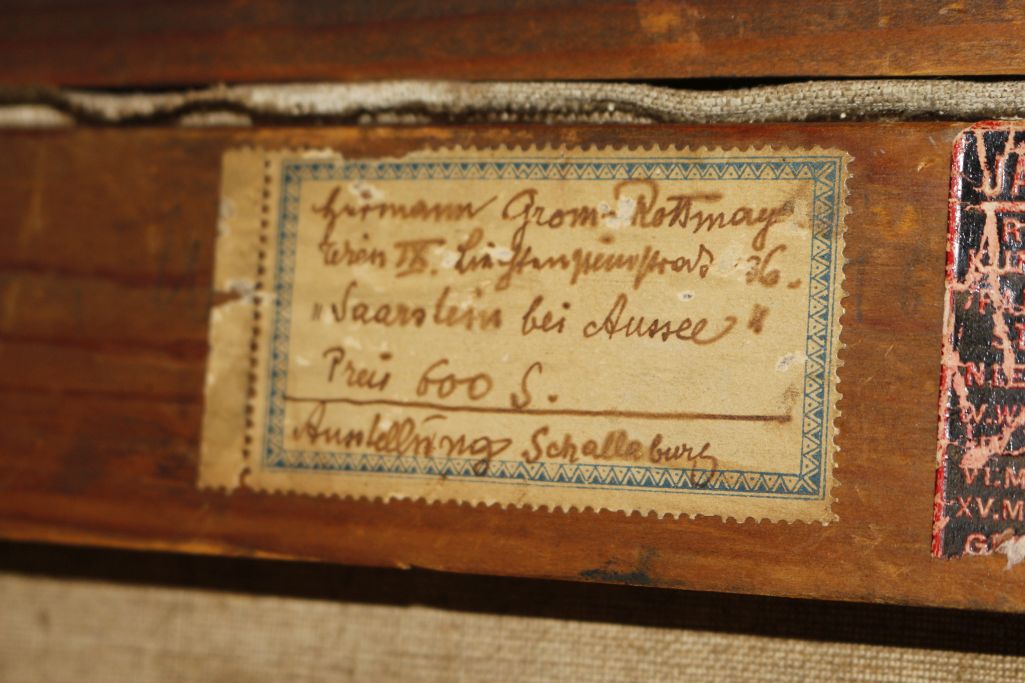 Hermann Grom-Rottmayer
Wien IX. Liechtensteinstraße 36.
"Saarstein bei Aussee"
Preis 600 S.
Ausstellung Schallaburg
V.W
VI.M
XV.M